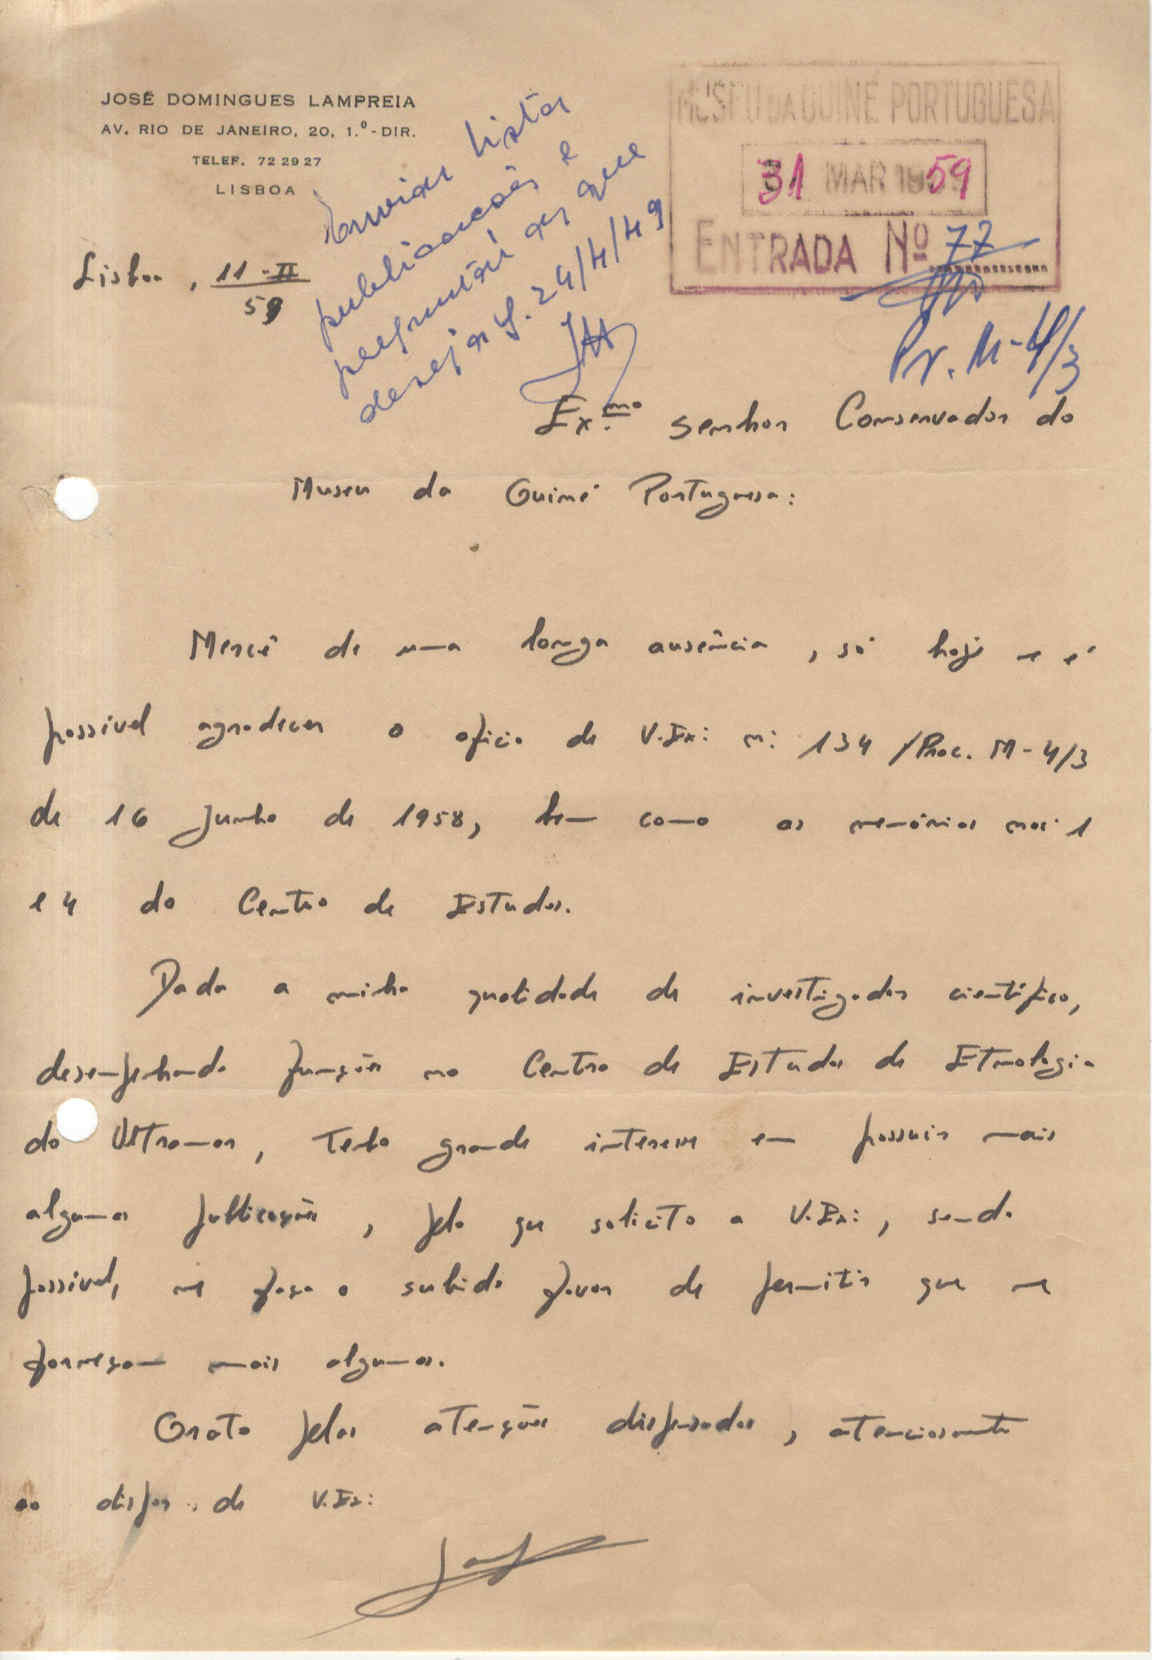 JOSÉ DOMINGUES LAMPREIA
AV. RIO DE JANEIRO, 20, 1.º-DIR.
TELEF. 72 29 27
LISBOA
MUSEU DA GUINÉ PORTUGUESA
31 MAR 1959
ENTRADA Nº 77
Pr. M-4/3
Enviar lista
publicações e
perguntar as que
deseja. 24/4/49
Lisboa, 11-II
59
Ex.mo Senhor Conservador do
Museu da Guiné Portuguesa:
Mercê de uma longa ausência, só hoje me é
possível agradecer o ofício de V.Ex: n: 134/Proc. M-4/3
de 16 Junho de 1958, bem como as memórias nos: 1
e 4 do Centro de Estudos.
Dada a minha qualidade de investigador científico,
desempenhando funções no Centro de Estudos de Etnologia
do Ultramar, tenho grande interesse em possuir mais
algumas publicações, pelo que solicito a V.Ex:, sendo
possível, me faça o subido favor de permitir que me
forneçam mais algumas.
Grato pelas atenções dispensadas, atenciosamente
ao dispor de V.Ex: